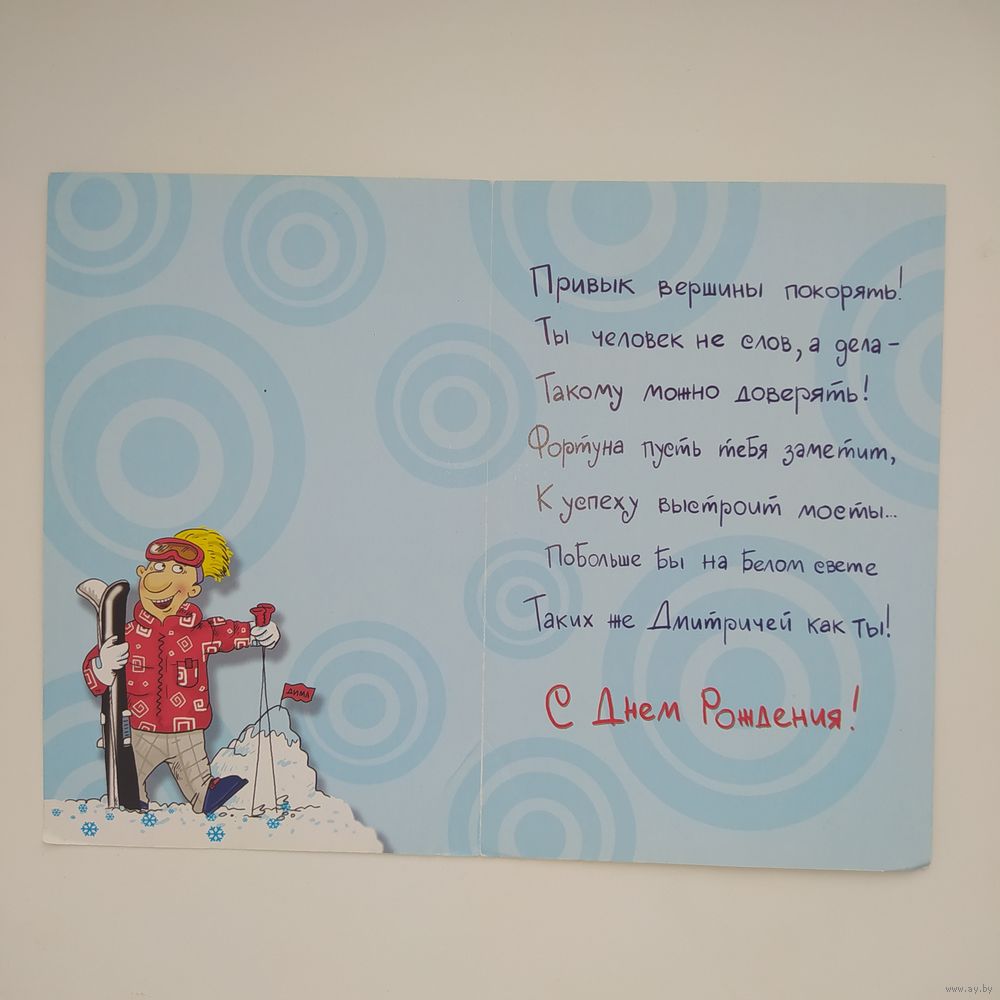 Привык вершины покорять!
Ты человек не слов, а дела-
Такому можно доверять!
Фортуна пусть тебя заметит,
К успеху выстроит мосты...
Побольше бы на белом свете
Таких же Дмитричей как ты!
С Днем Рождения!
ДИМА
www.ay.by